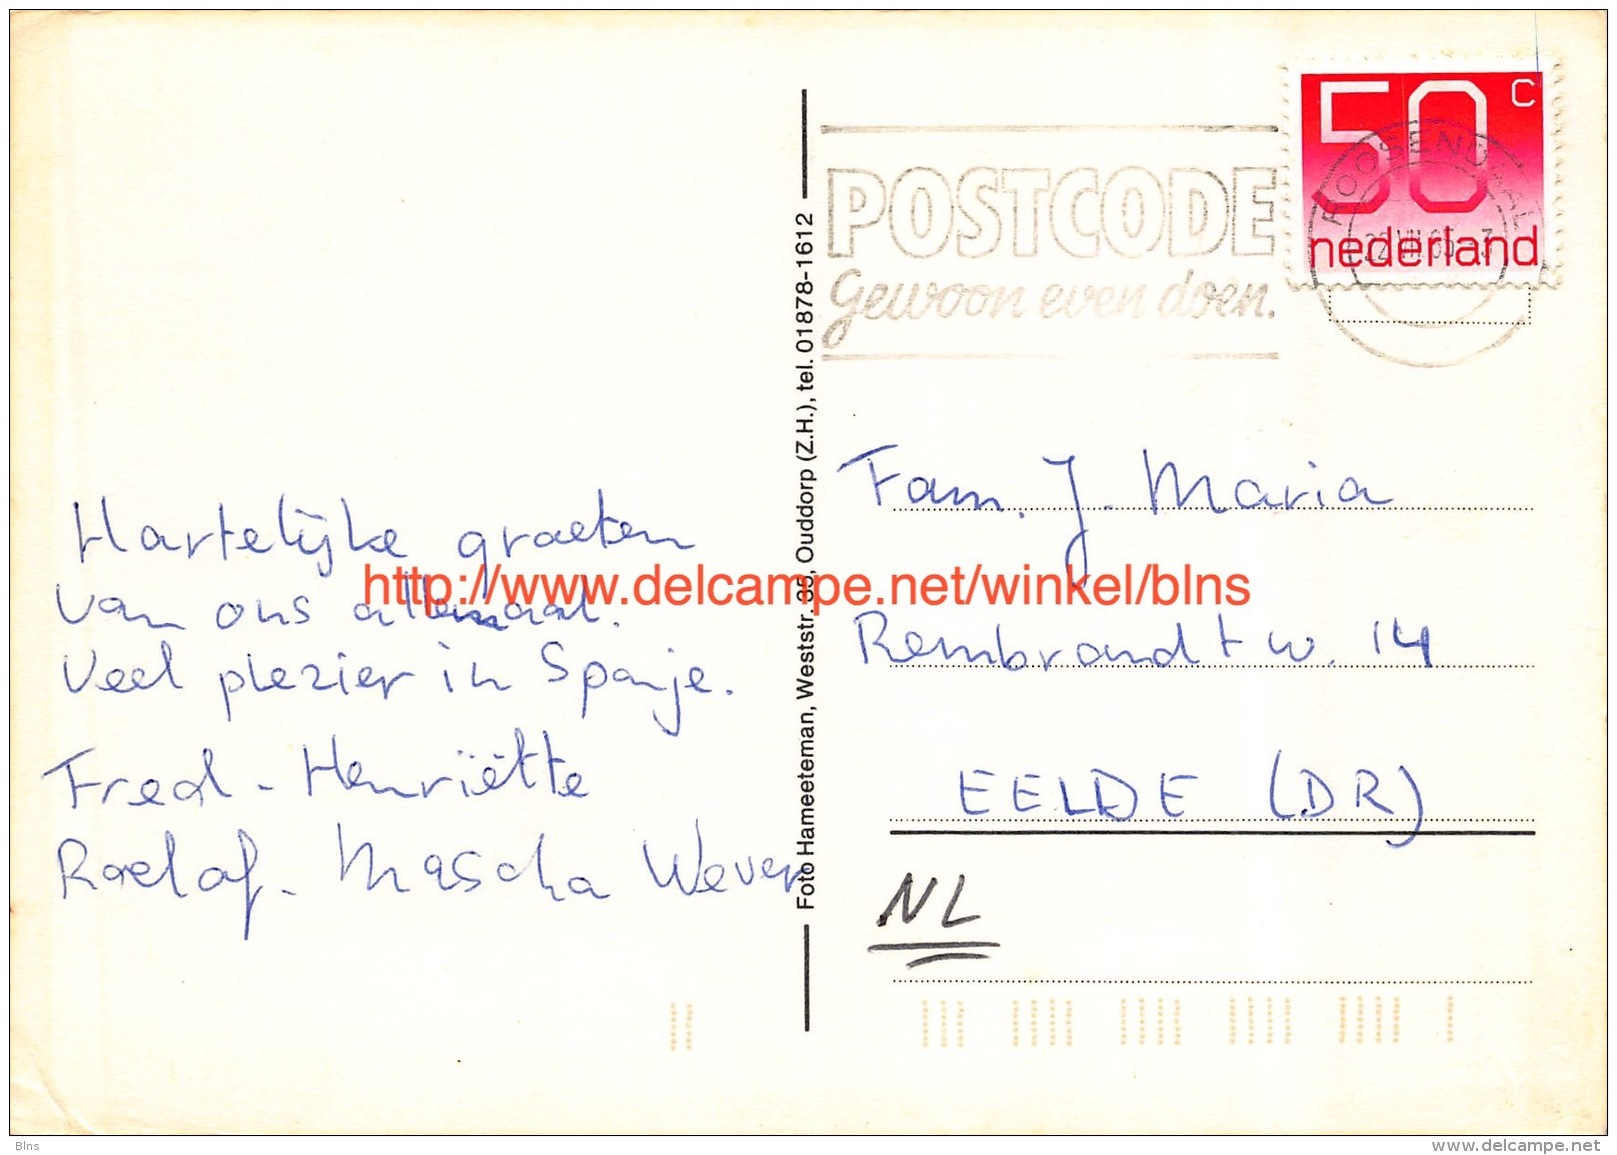 50 C
nederland
ROOSENDAAL
POSTCODE
Gewoon even doen.
Hartelijke groeten
van ons allemaal.
Veel plezier in Spanje.
Fred - Henriëtte
Roelof - Mascha Wever
Foto Hameeteman, Weststr. 35, Ouddorp (Z.H.), tel. 01878-1612
Fam. J. Maria
Rembrandt w. 14
EELDE (DR)
NL
http://www.delcampe.net/winkel/blns
Blns
www.delcampe.net